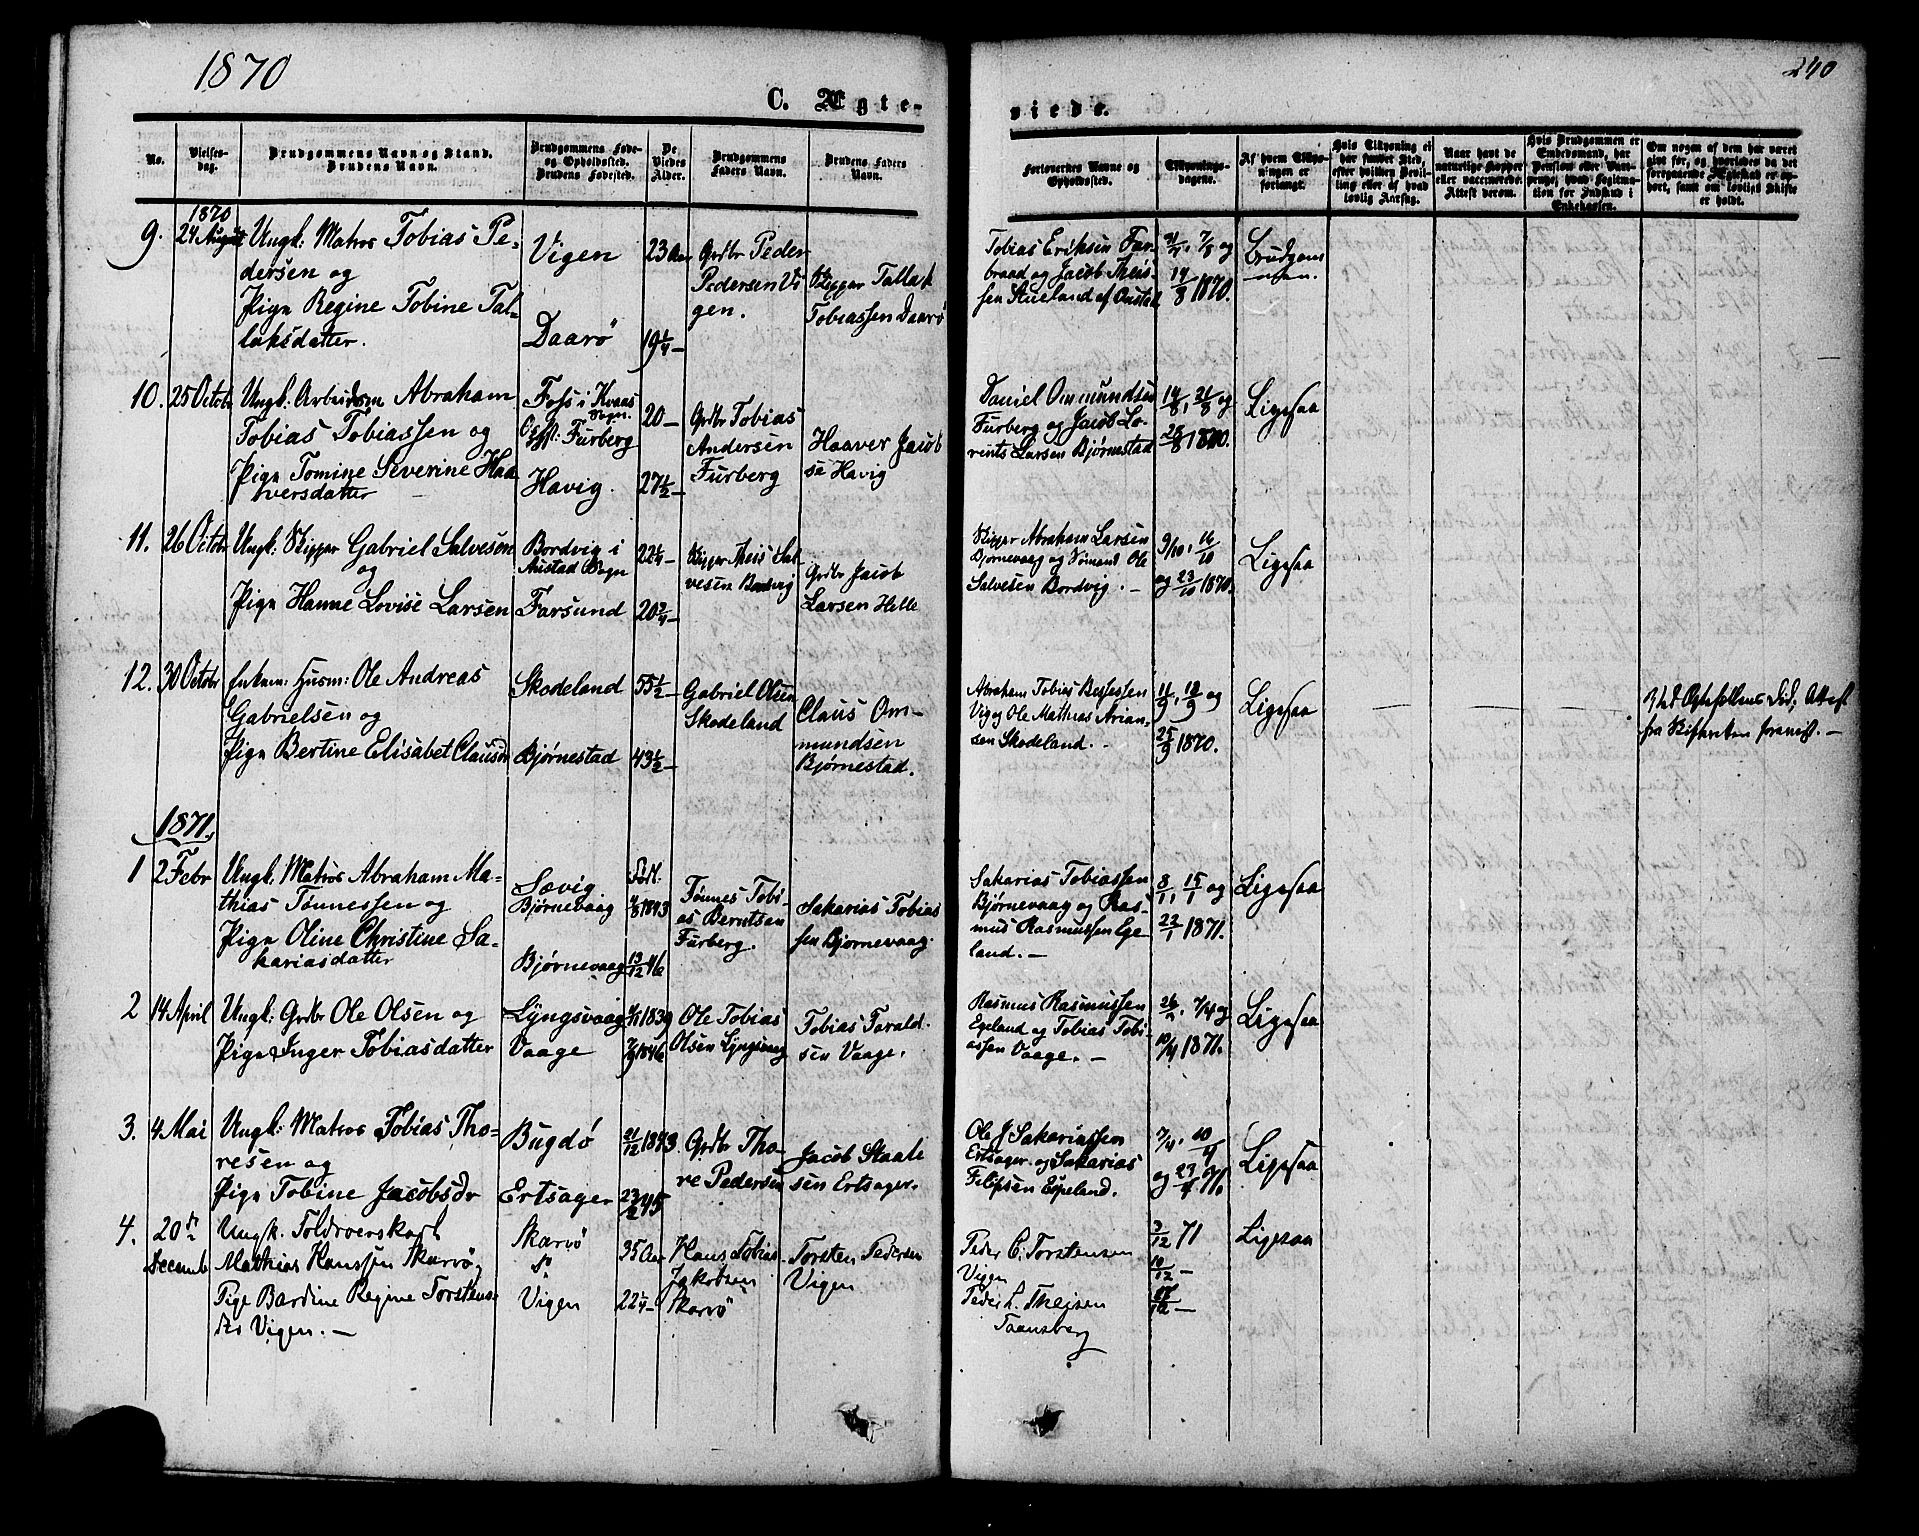 1870
240
C. Ægte-
viede.
No.
Vielses-
dag.
Brudgommens Navn og Stand.
Brudens Navn.
Brudgommens Føde-
og Opholdssted.
Brudens Fødested.
De
Viedes
Alder.
Brudgommens
Faders Navn.
Brudens Faders
Navn.
Forlovernes Navne og
Opholdssted.
Tillysnings-
dagene.
Af hvem Lysnin-
ningen er
forlangt.
Hvis Tillysning ei
har fundet Sted,
efter hvilken Bevil-
ling eller af hvad
lovlig Aarsag.
Naar havt de
naturlige Kopper
eller vaccinerede.
Attest derom.
Hvis Brudgommen er
Embedsmand, har
Pension eller Vart-
penge, hvad Legitima-
tion for Indskud i
Enkekassen.
Om nogen af dem har været
givt før, og hvorledes da det
foregaaende Ægteskab er op-
hørt, samt om lovligt Skifte
er holdt.
1870
9. 24 August Ungk: Matros Tobias Pe-
dersen og
Pign Regine Tobine Tal-
laksdatter.
Vigen
Daarø
23 Aar
19 1/4 —
Grdbr Peder
Pedersen Vi
gen.
Skipper Tallak
Tobiassen Daarø
Tobias Eriksen Far-
braad og Jacob Theis-
sen Stueland af Oustad
31/7, 7/8 og
14/8 1870.
Brudgom-
men.
10. 25 Octobr Ungk: Arbeidsm Abraham
Tobias Tobiassen og
Pign Tomine Severine Haa
versdatter
Foss i Kvaas
Sogn.
Furberg
Havig.
20 —
27 1/2 —
Grdbr Tobias
Andersen
Furberg
Haaver Jacob
se Havig
Daniel Ommundsen
Furberg og Jacob Lo-
rents Larsen Bjørnestad
14/8, 21/8 og
28/8 1870.
Ligesaa
11. 26 Octobr Ungk: Skipper Gabriel Salvesen
og
Pign Hanne Lovise Larsen
Bordvig i
Austad Sogn
Farsund
22 1/4 —
20 2/4 —
Skipper Theis Sal-
vesen Bordvig
Grdbr Jacob
Larsen Helle
Skipper Abraham Larsen
Bjørnevaag og Sømand Ole
Salvesen Bordvig. —
9/10, 16/10
og 23/10 1870.
Ligesaa
12. 30 Octobr Enkem: Husm: Ole Andreas
Gabrielsen og
Pign Bertine Elisabet Clausdr
Skodeland
Bjørnestad
55 1/2 —
43 1/2 —
Gabriel Olsen
Skodeland
Claus Om-
mundsen
Bjørnestad.
Abraham Tobias Bessesen
Vig og Ole Mathias Arian-
sen Skodeland. —
11/9, 18/9 og
25/9 1870.
Ligesaa
— — —
Ved Ægtefellens Død, Attest
fra Skifteretten forevist. —
1871.
1 2 Febr Ungk. Matros Abraham Ma-
thias Tønnessen og
Pign Oline Christine Sa-
kariasdatter
Sævig.
Bjørnevaag
Bjørnevaag
Født.
/8 1843
13/12 46
Tønnes Tobi-
as Berntsen
Furberg.
Sakarias Tobias
sen Bjørnevaag.
Sakarias Tobiassen
Bjørnevaag og Ras-
mus Rasmussen Ege
land. —
8/1, 15/1 og
22/1 1871.
Ligesaa
2 14 April Ungk: Grdbr Ole Olsen og
Pign Inger Tobiasdatter
Lyngsvaag
Vaage
1839
1846
Ole Tobias
Olsen Lyngsvaag
Tobias Tarald-
sen Vaage.
Rasmus Rasmussen
Egeland og Tobias Tobi-
assen Vaage. —
26/3, 7/4 og
10/4 1871.
Ligesaa
3. 4 Mai Ungk: Matros Tobias Tho-
resen og
Pign Tobine Jacobsdr
Bugdø
Ertsager
21/12 1843
23/2 45
Grdbr Tho-
re Pedersen
Jacob Staale
sen Ertsager.
Ole J Sakariassen
Ertsager og Sakarias
Filipsen Espeland.
7/4, 10/4
og 23/4 71.
Ligesaa
4. 20de
Decembr
Ungk. Toldroerskarl
Mathias Hanssen Skarvø,
Pige Bardine Regine Torstens-
dtr Vigen. —
Skarvø
do
Vigen
35 Aar
22 1/4 —
Hans Tobias
Jakobsen
Skarvø
Torsten Pedersen
Vigen
Peder C. Torstensen
Vigen
Peder L. Theisen
Taansberg
3/12 71
10/12 —
17/12 —
Ligesaa